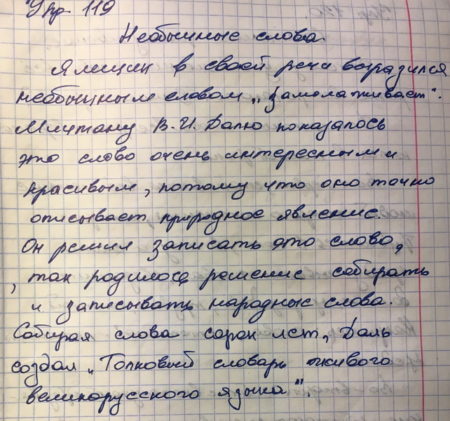 Упр 119
Необычные слова.
Ямщик в своей речи возразился
необычным словом „Замолаживает".
Мичману В.И.Далю показалось
это слово очень интересным и
красивым, потому что оно точно
описывает природное явление.
Он решил записать это слово,
, так родилось решение собирать
и записывать народные слова.
Собирая слова сорок лет, Даль
создал „Толковый словарь живого
великорусского языка".